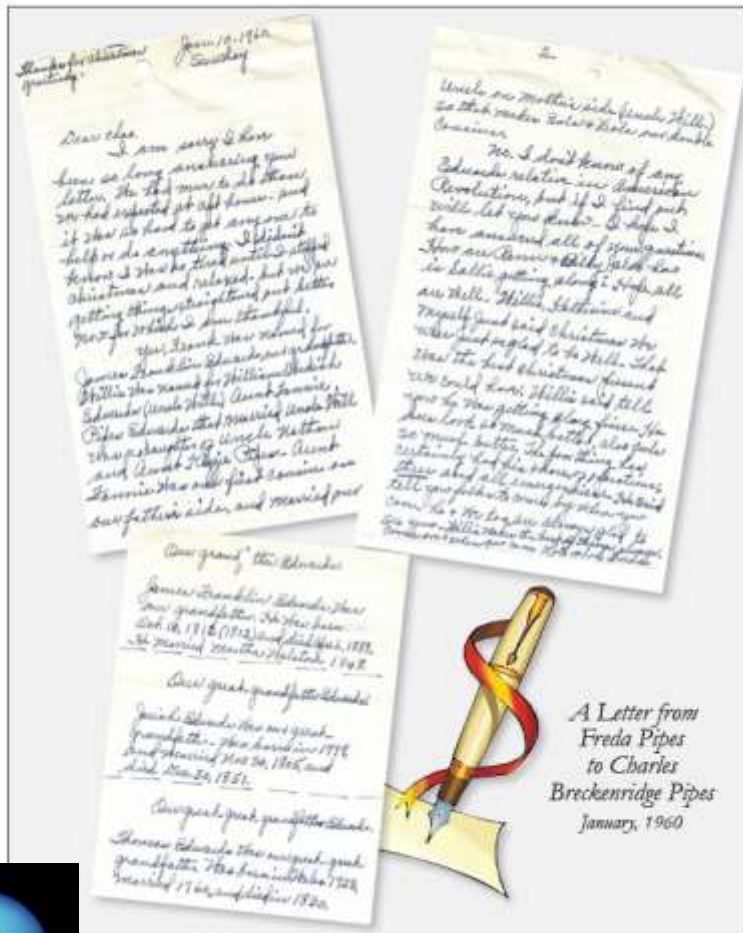 Thanks for Christmas
greeting.
Jan. 10, 1960
Sunday
Dear Chas,
I am sorry I have
been so long answering your
letter. We had more to do than
we had expected at apt house. and
it was so hard to get any one to
help or do anything. I didn't
know I was so tired until I stopped
Christmas and relaxed. but we are
getting things straightened out better
now for which I am thankful.
Yes, Frank was named for
James Franklin Edwards, our grandfather
Willie was named for William
Edwards (Uncle Will) Aunt Fannie
Pipes Edwards that married Uncle Will
was a daughter of Uncle Nathan
and Aunt Pipes. Aunt
Fannie was our first cousin on
our father's side, and married our
2
Uncle on Mother's side (Uncle Will)
so that makes our double
Cousins.
No. I don't know of any
Edwards relative in American
Revolution, but if I find out
will let you know. I hope I
have answered all of your questions
How are
is Sallie getting along? Hope all
are well. Willie, and
myself just said Christmas we
were just so glad to be well. That
was the best Christmas present
we could have. Willie said tell
you he was getting along fine. He
sure looks so much better, also feels
so much better, the poor thing has
certainly had his share of operations,
three and all emergencies. He said
tell you folks to come by when you
can, he & we too, are always glad to
see you.
Our grand father Edwards
James Franklin Edwards was
our grandfather. He was born
Oct. 18, (1812) and died 1888.
He married Martha
Our great grandfather Edwards
Josiah Edwards was our great
Grandfather. Was born in 1778
and married Nov 20, 1805, and
died Dec. 20, 1851.
Our great great grandfather Edwards.
Thomas Edwards was our great great
grandfather. Was born in Wales
married 1760, and died in
A Letter from
Freda Pipes
to Charles
Breckenridge Pipes
January, 1960